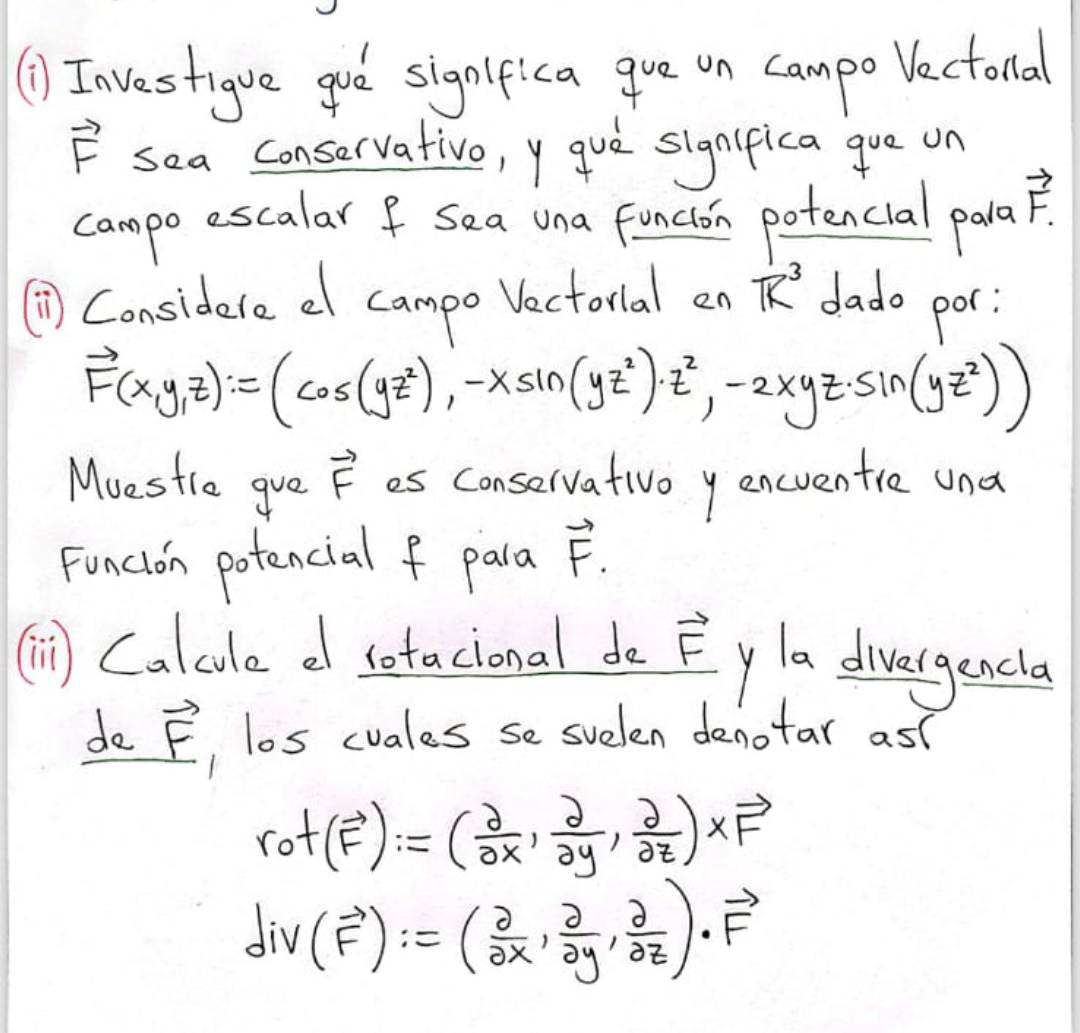 (i) Investigue qué significa que un campo Vectorial
F⃗ sea conservativo, y qué significa que un
campo escalar f sea una función potencial para F⃗.
(ii) Considere el campo Vectorial en ℝ³ dado por:
F⃗(x,y,z):=(cos(yz²), -xsin(yz²)·z², -2xyz·sin(yz²))
Muestre que F⃗ es conservativo y encuentre una
Función potencial f para F⃗.
(iii) Calcule el rotacional de F⃗ y la divergencia
de F⃗, los cuales se suelen denotar así
rot(F⃗):=(∂/∂x, ∂/∂y, ∂/∂z)×F⃗
div(F⃗):=(∂/∂x, ∂/∂y, ∂/∂z)·F⃗